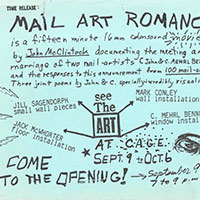 TIME RELEASE
MAIL ART ROMANC
is a fifteen minute 16mm
by John McClintock documenting the meeting an
marriage of two mail-artists C. John & C. Mehrl Be
and the responses to this announcement from 100 mail-a
Three joint poems by John & C. specially
JILL SAGENDORPH
small wall pieces
see
The
ART
MARK CONLEY
wall installation
JACK McWHORTER
floor installation
C. MEHRL BENN
window install
AT C.A.G.E.
SEPT. 9 → OCT. 6
COME
TO THE OPENING! → September
7 to 9 p.m.